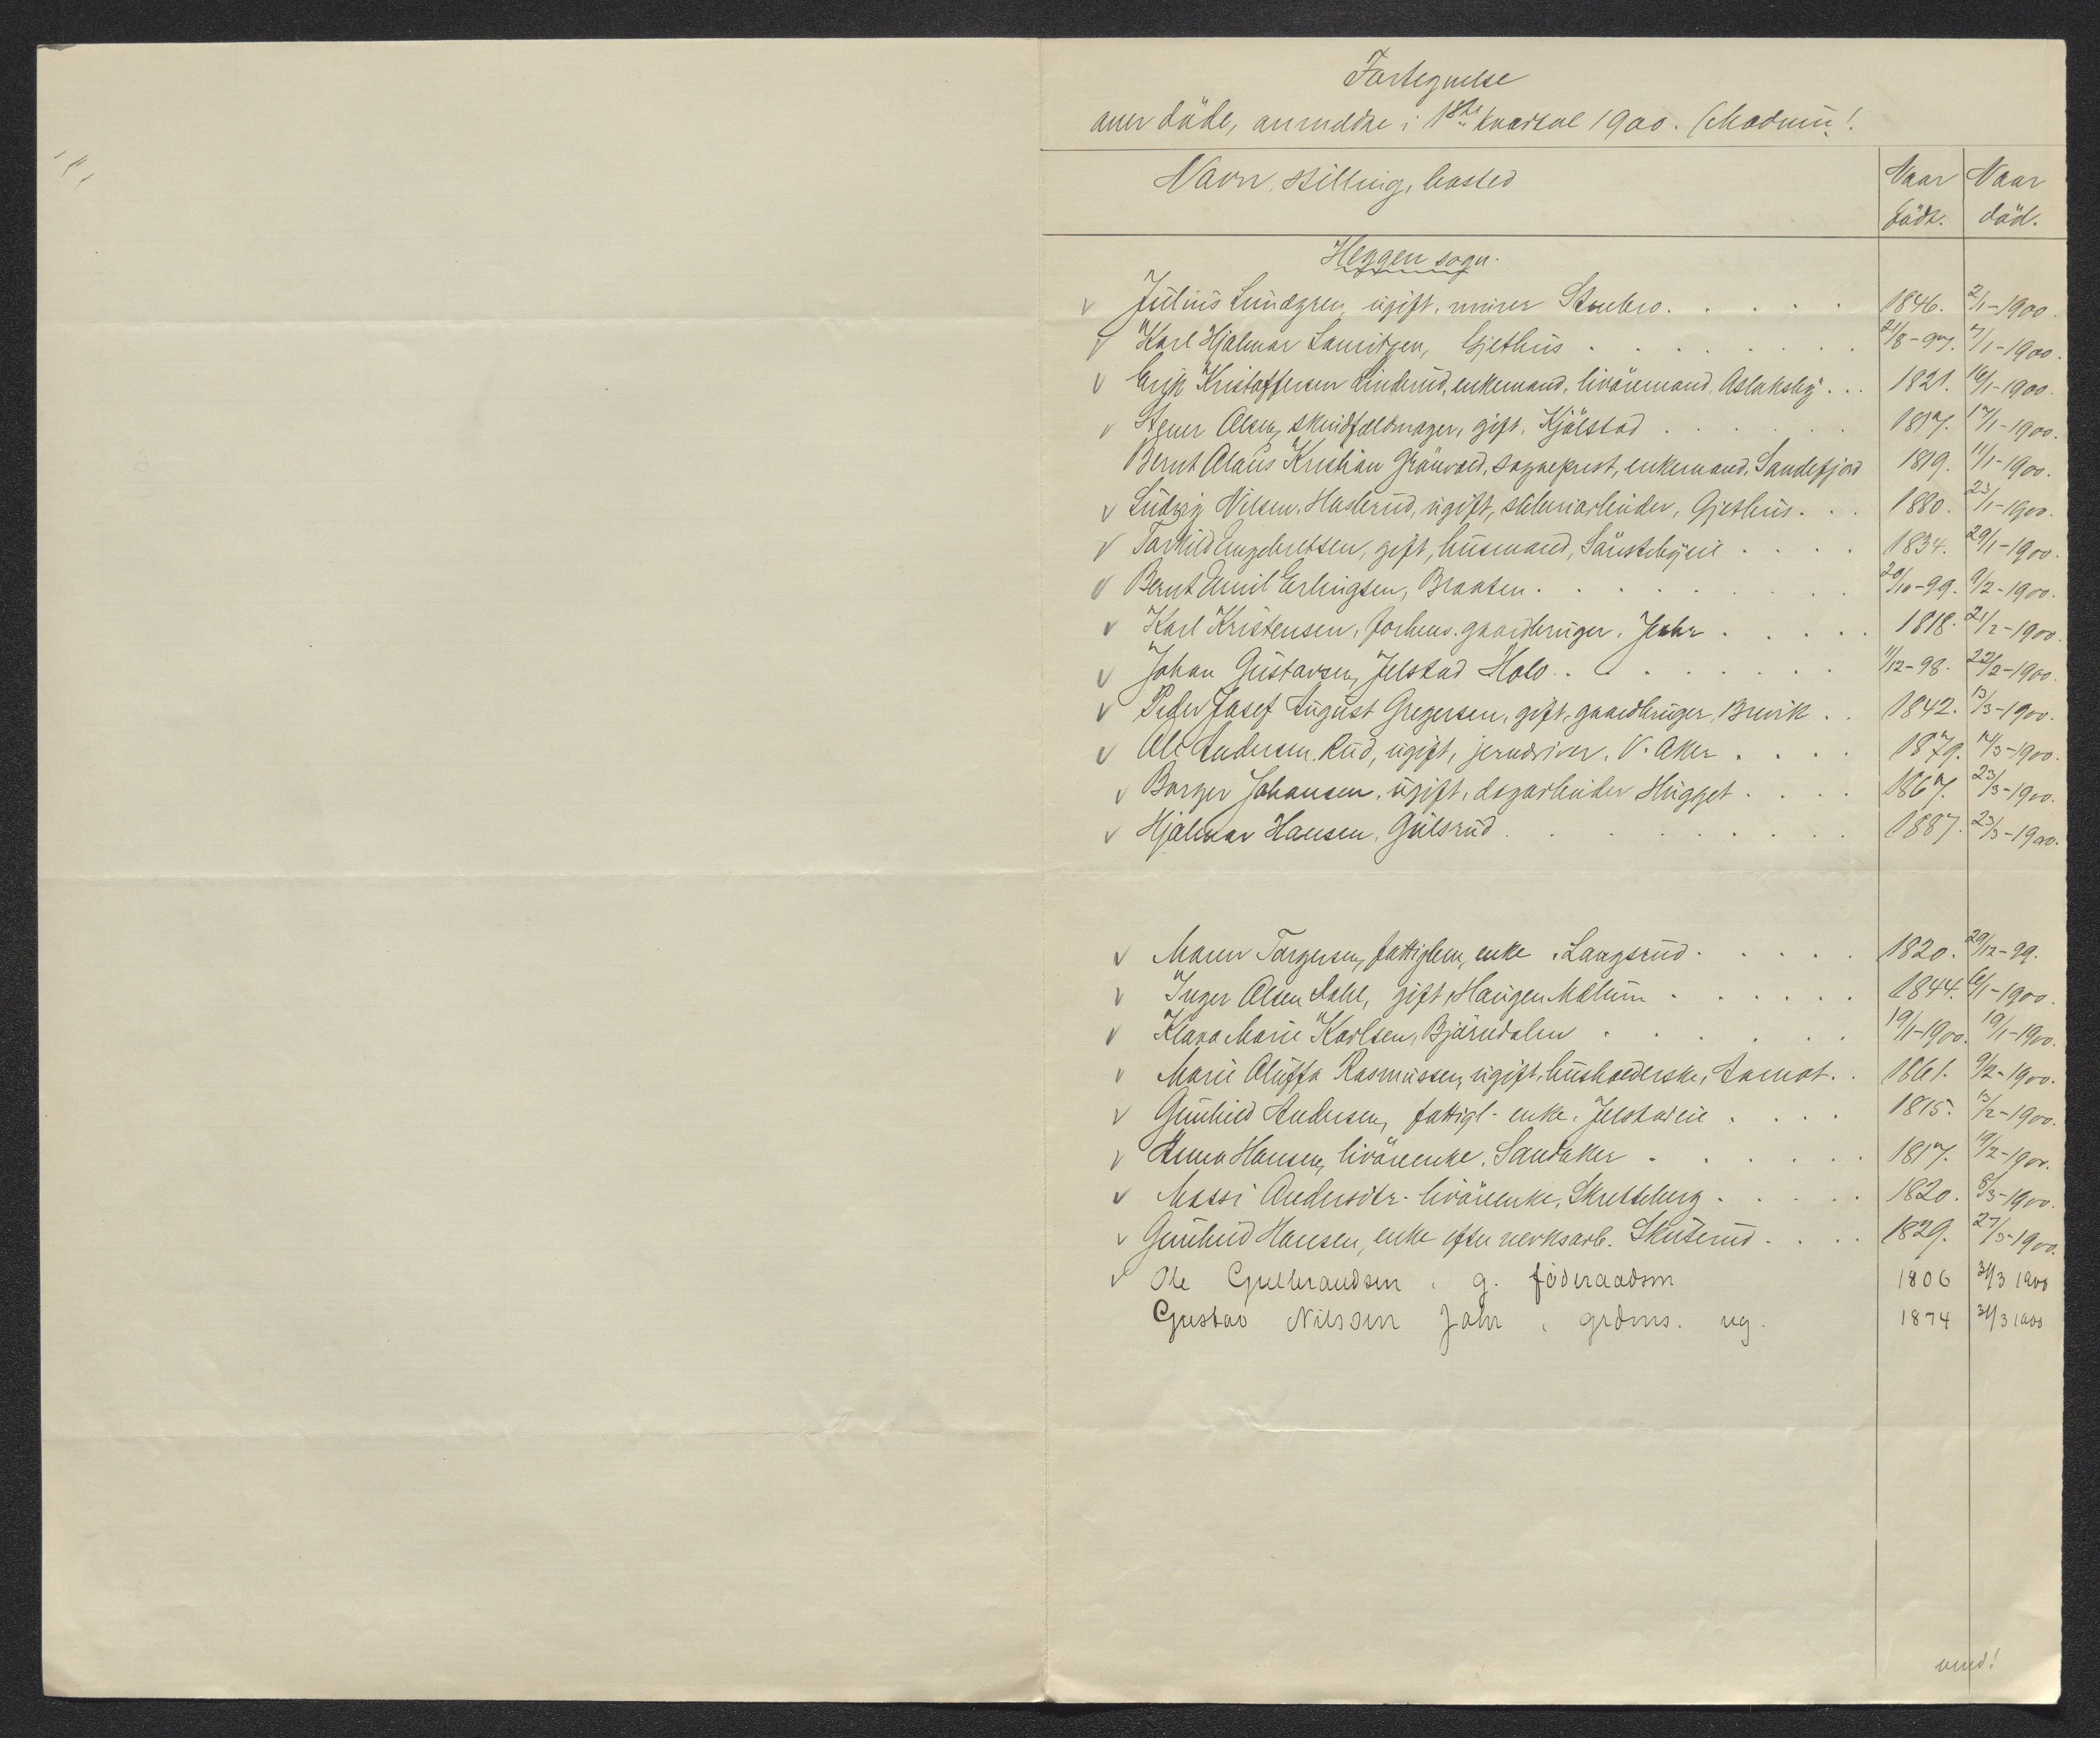 Fortegnelse
over døde, anmeldte i 1ste kvartal 1900. (Modum).
Navn, stilling, bosted
Naar født.
Naar død.
Heggen sogn.
Julius Lundgren, ugift, murer Strubro. 1846. 2/1-1900.
Karl Hjalmar Lauritzen, Gjethus 21/8-97. 7/1-1900.
Erik Kristoffersen Linderud, enkemand, livøremand, Aslaksby 1821. 16/1-1900.
Stener Olsen, skindfeldmager, gift, Kjølstad 1817. 17/1-1900.
Bernt Olaus Kristian Grønvold, sogneprest, enkemand, Sandefjord 1819. 11/1-1900.
Ludvig Nilsen Haslerud, ugift, sliberiarbeider, Gjethus. 1880. 23/1-1900.
Torkild Engebretsen, gift, husmand, Sønstebyeie 1834. 29/1-1900.
Bernt Emil Erlingsen, Braaten. 20/10-99. 9/2-1900.
Karl Kristensen, forhenv. gaardbruger, Jahr 1818. 21/2-1900.
Johan Gustavsen, Jelstad Holo. 11/12-98. 22/2-1900.
Peder Josef August Gregersen, gift, gaardbruger, Brevik 1842. 13/3-1900.
Ole Andersen Rud, ugift, jerndriver, V. Aker 1879. 14/3-1900.
Borger Johansen, ugift, dagarbeider Hugget 1867. 23/3-1900.
Hjalmar Hansen, Gulsrud 1887. 23/3-1900.
Maren Torgersen, fattiglem, enke, Langsrud. 1820. 29/12-99.
Inger Olsen Dahl, gift, Haugen Mælum 1844. 6/1-1900.
Klara Marie Karlsen, Bjørndalen 19/1-1900. 19/1-1900.
Marie Oluffa Rasmussen, ugift, husholderske, Aamot. 1861. 9/2-1900.
Gunhild Andersen, fattigl- enke, Jelstadeie 1815. 13/2-1900.
Anna Hansen, livøreenke, Sandaker 1817. 19/2-1900.
Massi Andersdtr- livøreenke, Skretteberg 1820. 8/3-1900.
Gunhild Hansen, enke efter verksarb. Skuterud 1829. 27/3-1900.
Ole Gulbrandsen, g. føderaadsm 1806 31/3 1900
Gustav Nilssen Jahr, grdms. ug. 1874 31/3 1900
vend!